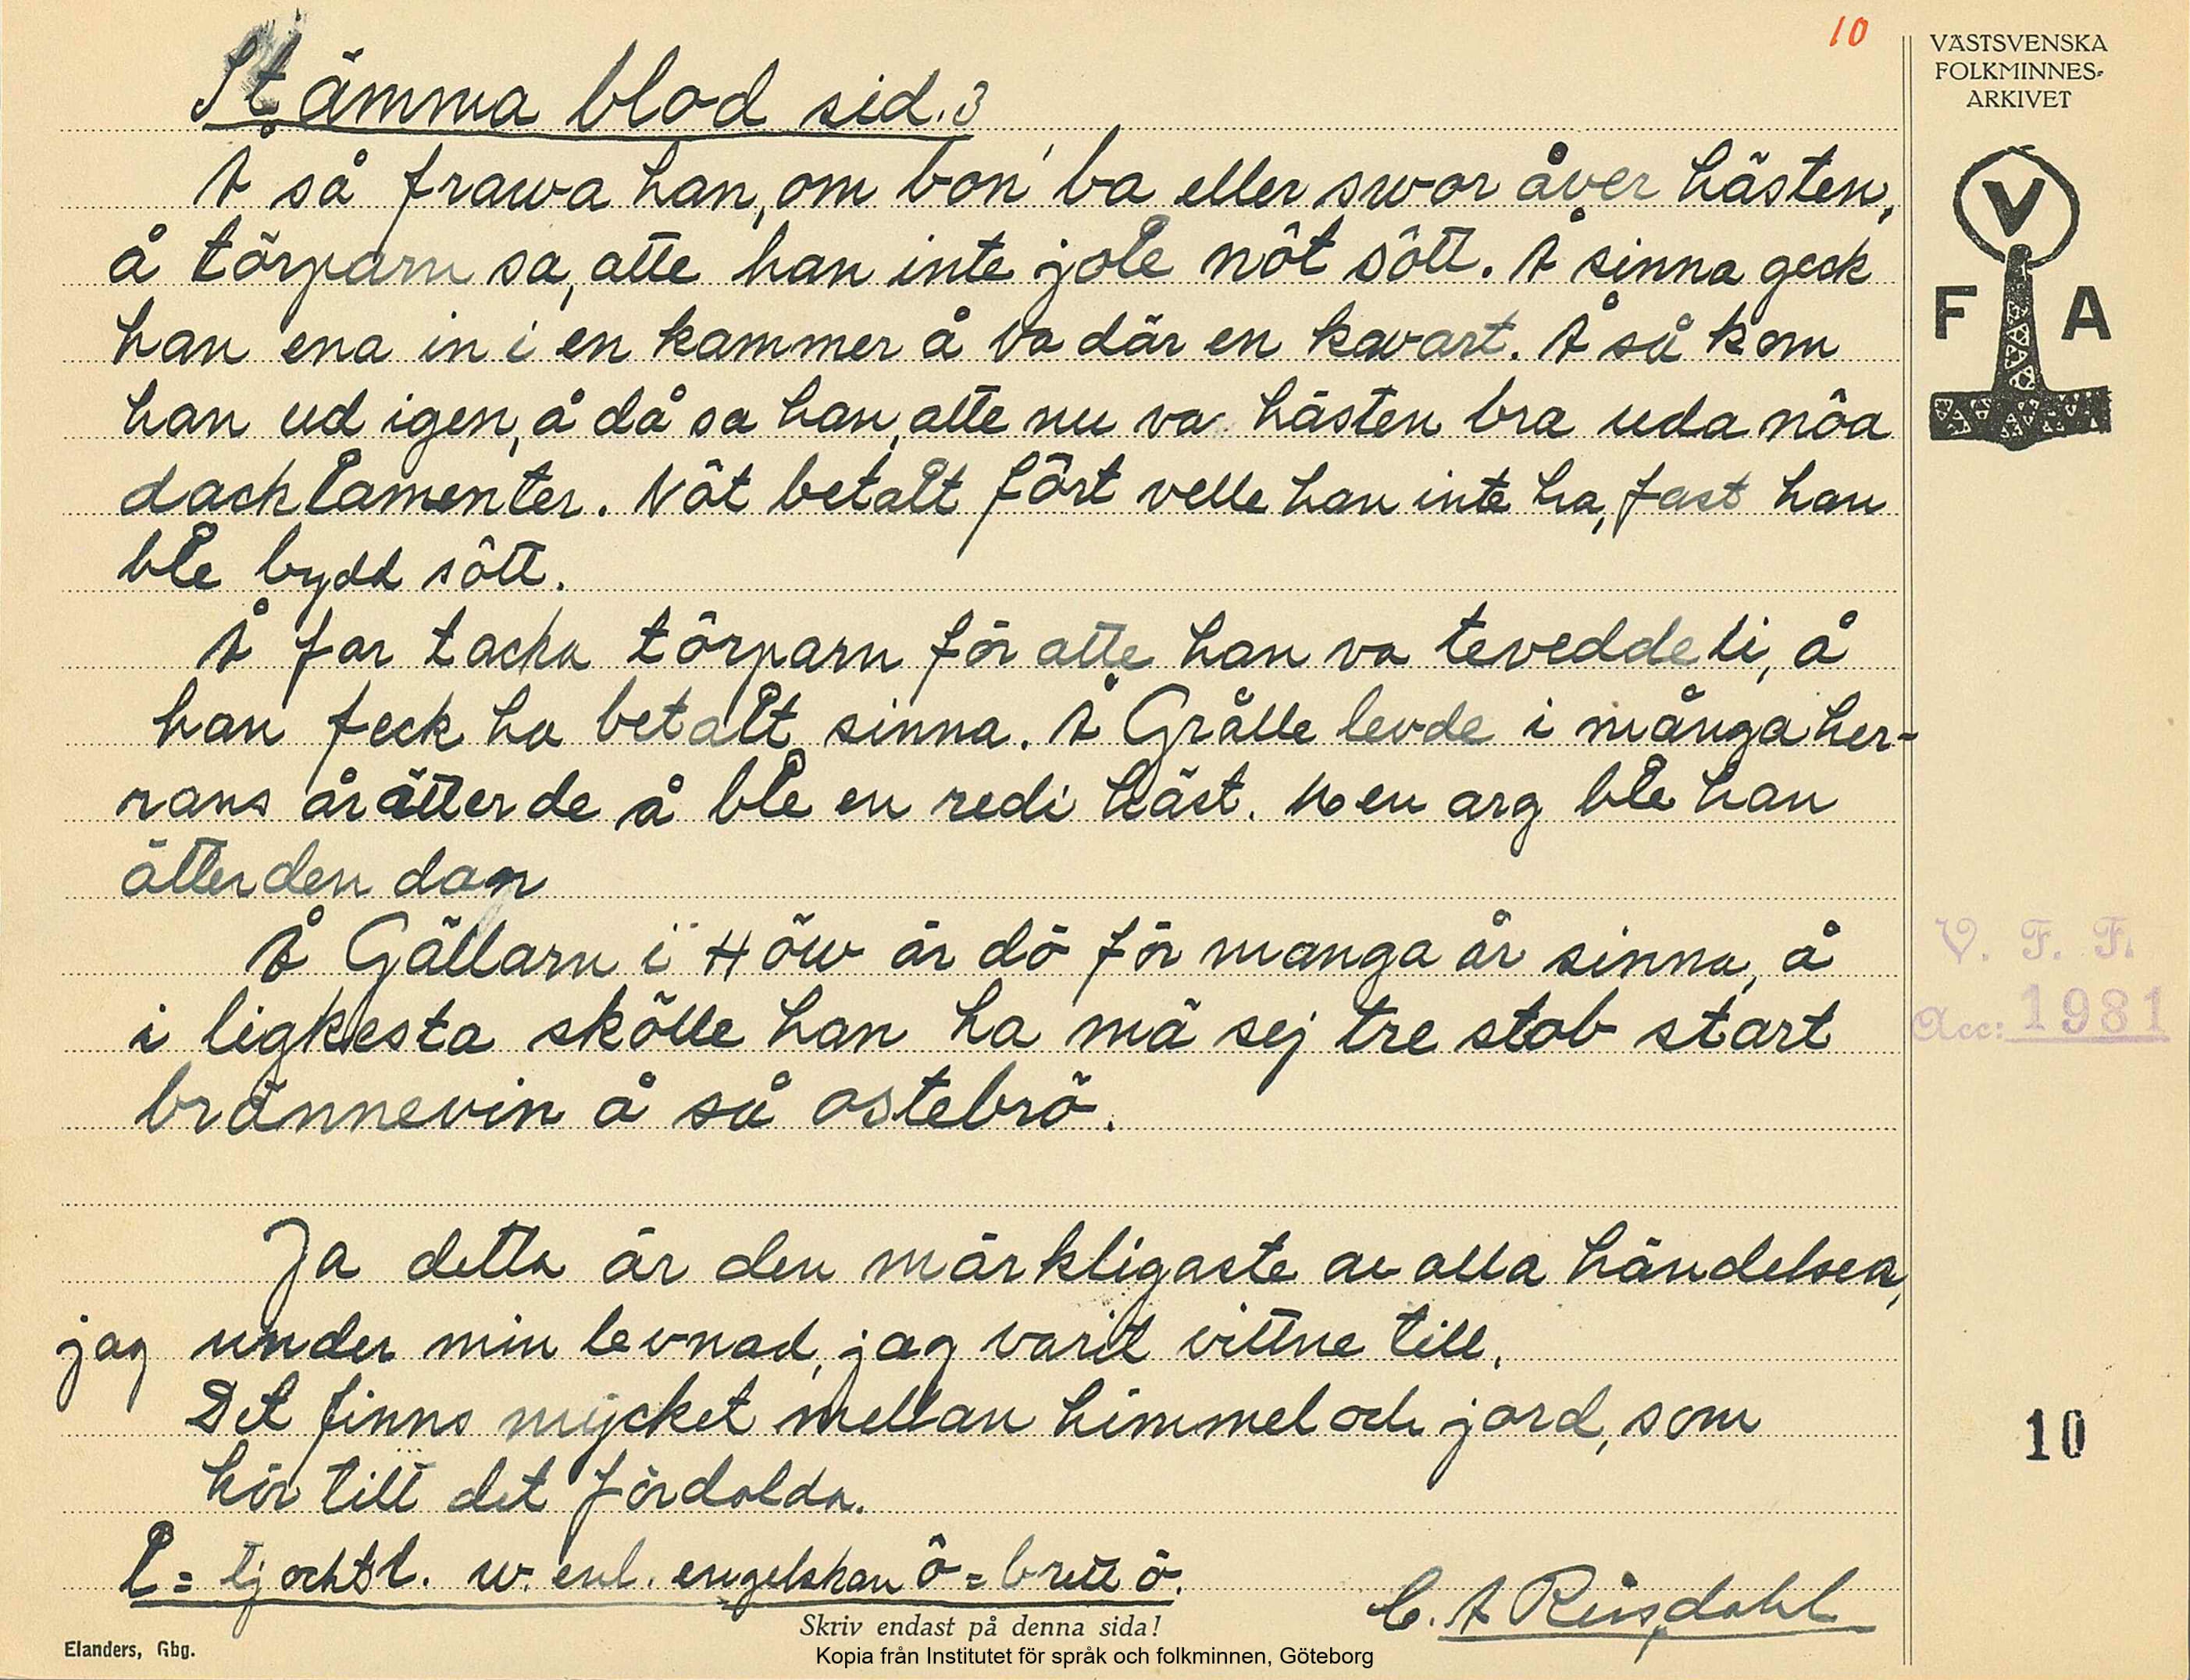 10
VÄSTSVENSKA
FOLKMINNES-
ARKIVET
V
F A
Stämma blod sid. 3
Å så frawa han, om bon' ba eller swor åver hästen,
å törparn sa, atte han inte jole nôt sôtt. Å sinna geck
han ena in i en kammer å va där en kavart. Å så kom
han ud igen, å då sa han, atte nu va hästen bra uda nôa
dacklamenter. Nôt betalt fôrt velle han inte ha, fast han
ble bydd sôtt.
Å far tacka törparn för atte han va teveddeli, å
han feck ha betalt sinna. Å Grålle levde i många her-
rans år ätter de å ble en redi häst. Men arg ble han
ätter den dan
Å Gällarn i Höw är dö för manga år sinna, å
i ligkesta skölle han ha mä sej tre stob start
brännevin å så ostebrö.
Ja detta är den märkligaste av alla händelser,
jag under min levnad, jag varit vittne till.
Det finns mycket mellan himmel och jord, som
hör till det fördolda.
L = tjockt l. w. enl. engelskan ô = brett ö.
C. A Ringdahl
Skriv endast på denna sida!
Elanders, Gbg.
Kopia från Institutet för språk och folkminnen, Göteborg
V. F. F.
Acc: 1981
10